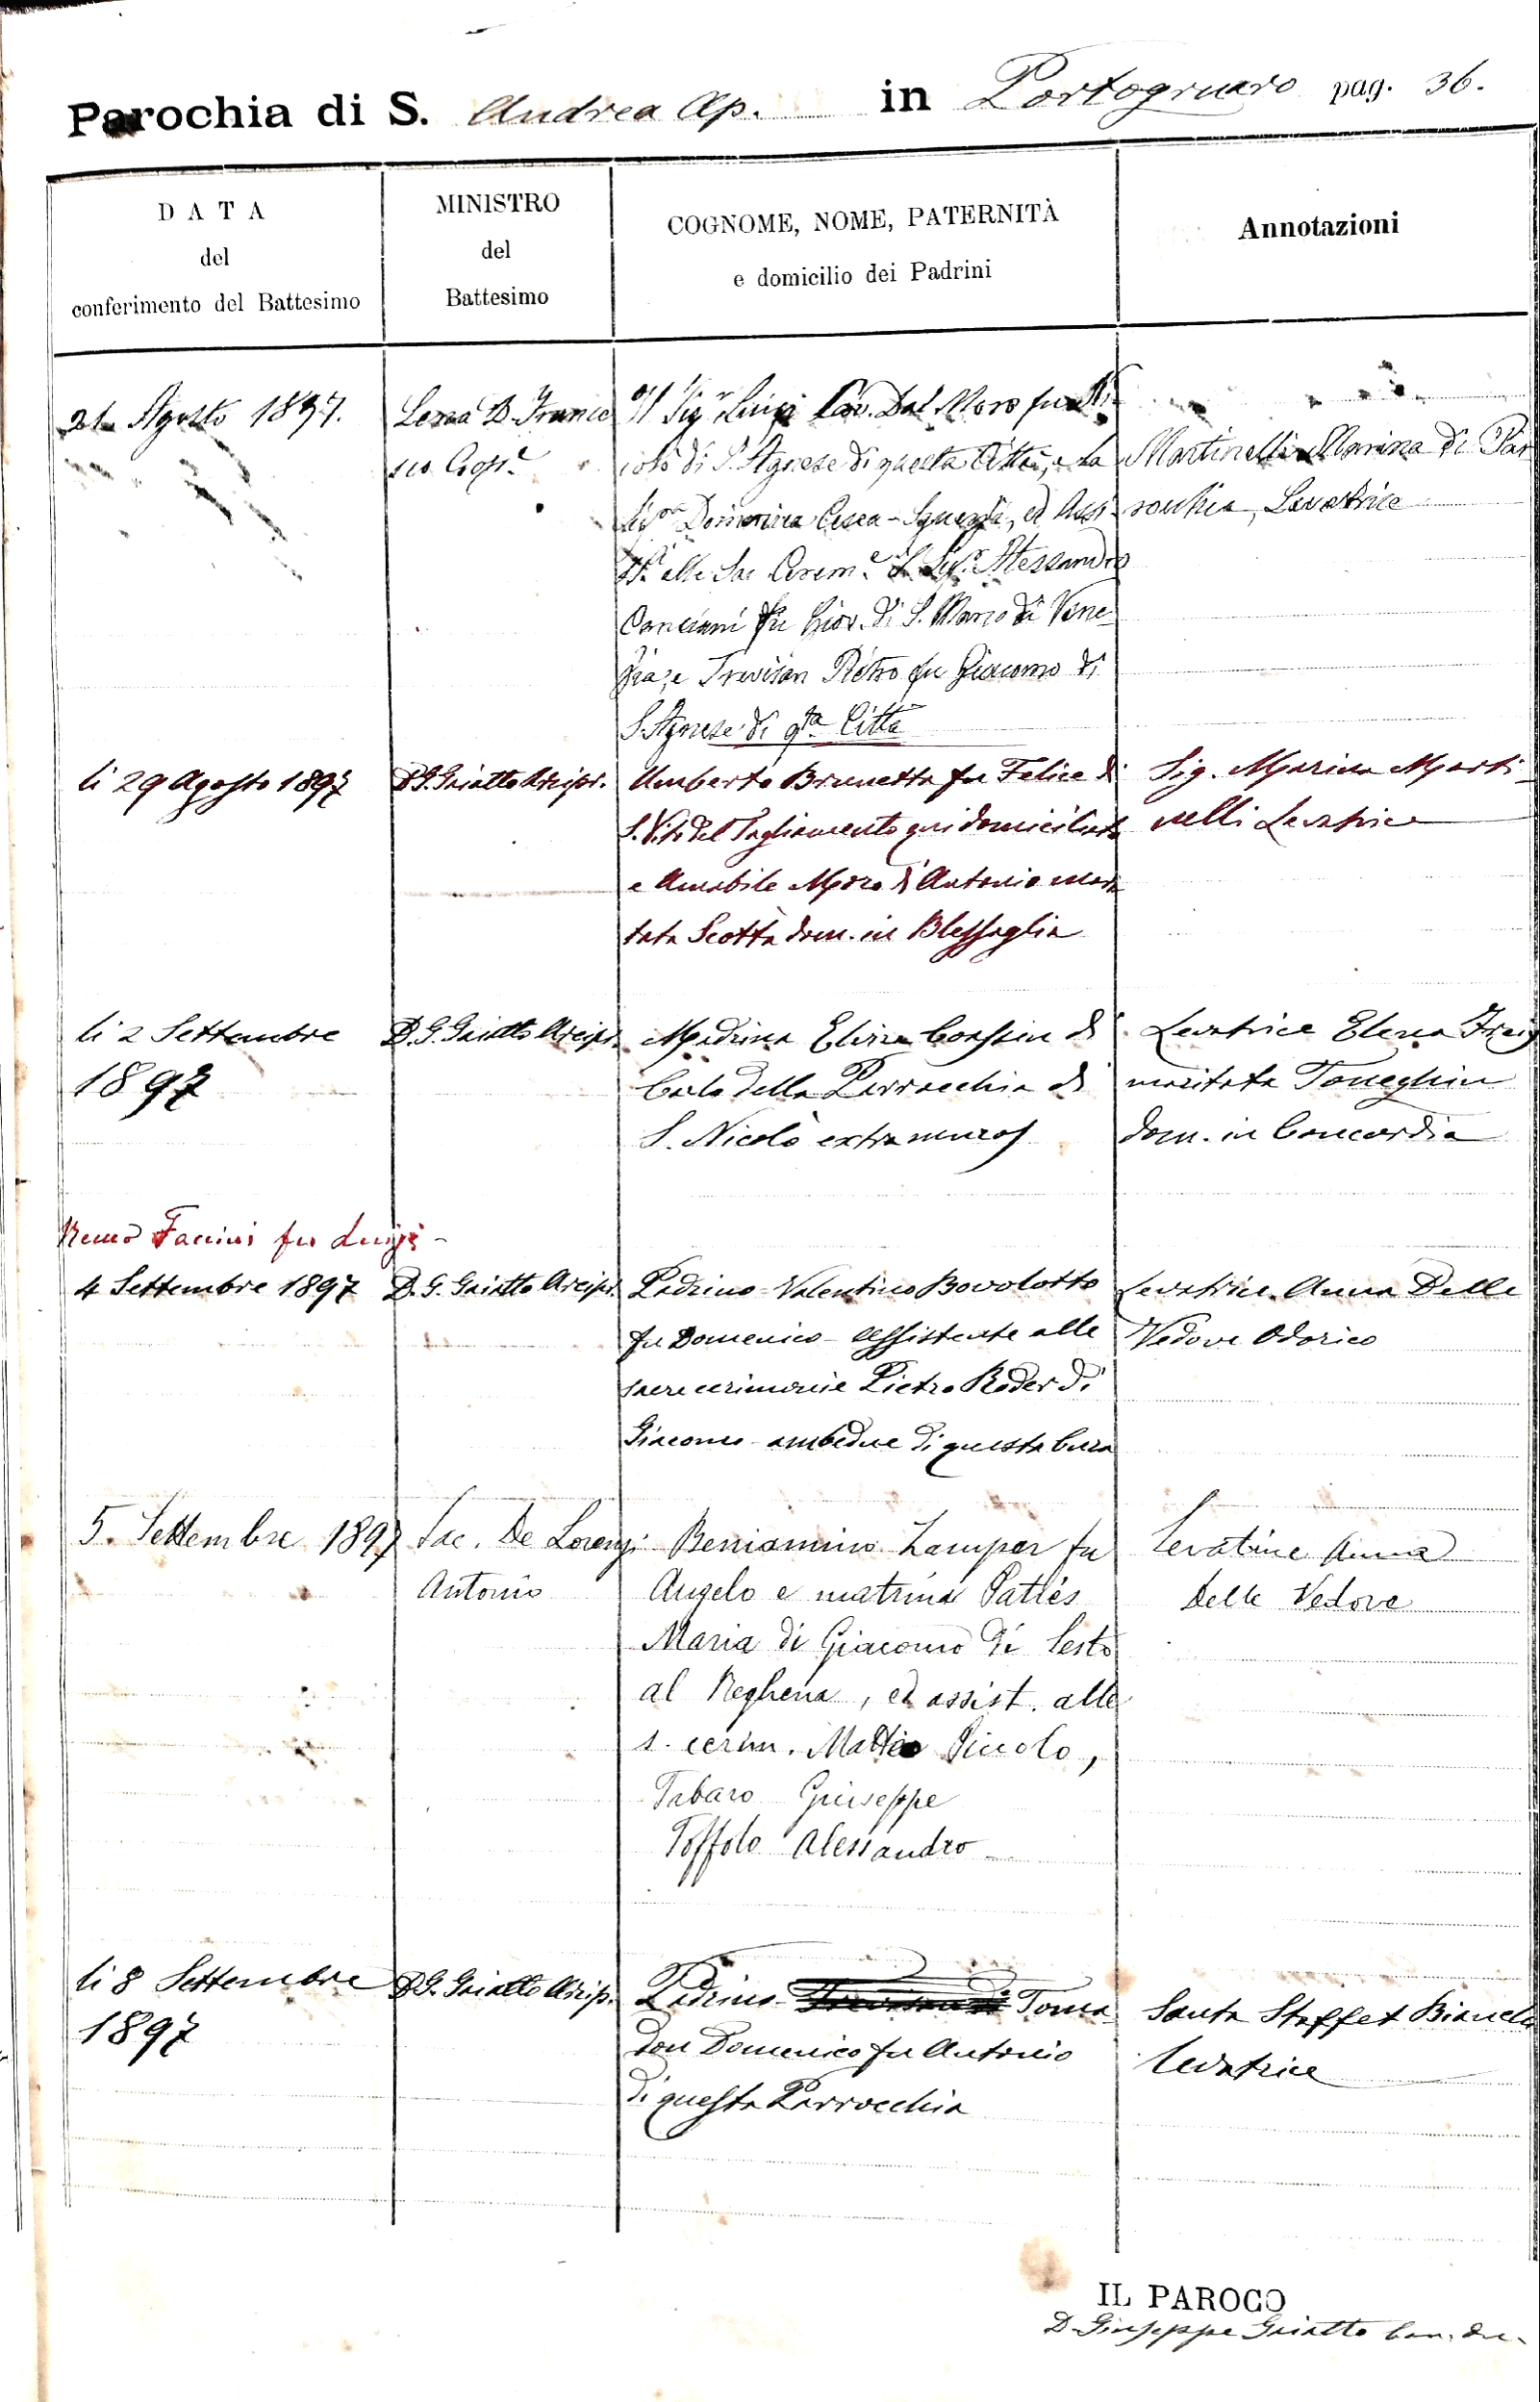 Parochia di S. Andrea Ap. in Portogruaro pag. 36.
DATA
del
conferimento del Battesimo
MINISTRO
del
Battesimo
COGNOME, NOME, PATERNITÀ
e domicilio dei Padrini
Annotazioni
21 Agosto 1897.
Lena D. France
sco Coope
Il Sigr Luigi Cav. Dal Moro fu Ni
colò di S. Agnese di questa Città, e la
Domenica Cesca - ed Assi
alle Sac Cerem.e il Sigr Alessandro
Canciani fu Giov. di S. Marco di Vene
zia, e Trevisan Pietro fu Giacomo di
S. Agnese di qta Città
Martinelli Marina di Par
rocchia, Levatrice
li 29 Agosto 1897
D. G. Gaiatto Arcipr.
Umberto Brunetta fu Felice di
S. Vito del Tagliamento qui domiciliato
e Amabile Moro di Antonio mari
tata Scottà dom. in Blessaglia
Sig. Marina Marti
nelli Levatrice
li 2 Settembre
1897
D. G. Gaiatto Arcipr.
Madrina Elvira di
Carlo della Parrocchia di
S. Nicolò extra muros
Levatrice Elena
maritata Toneghin
dom. in Concordia
Remo Faccini fu Luigi -
4 Settembre 1897
D. G. Gaiatto Arcipr.
Padrino - Valentino Bovolotto
fu Domenico - assistente alle
sacre cerimonie Pietro Roder di
Giacomo - ambedue di questa Cura
Levatrice Anna Delle
Vedove Odorico
5. Settembre 1897
Sac. De Lorenzi
Antonio
Beniamino Zamper fu
Angelo e matrina Patties
Maria di Giacomo di Sesto
al Reghena, ed assist. alle
s. cerim. Matteo Piccolo,
Tabaro Giuseppe
Toffolo Alessandro
Levatrice Anna
delle Vedove
li 8 Settembre
1897
D. G. Gaiatto Arcip.
Padrino - Toma
don Domenico fu Antonio
di questa Parrocchia
Santa Steffet
levatrice
IL PAROCO
D. Giuseppe Gaiatto